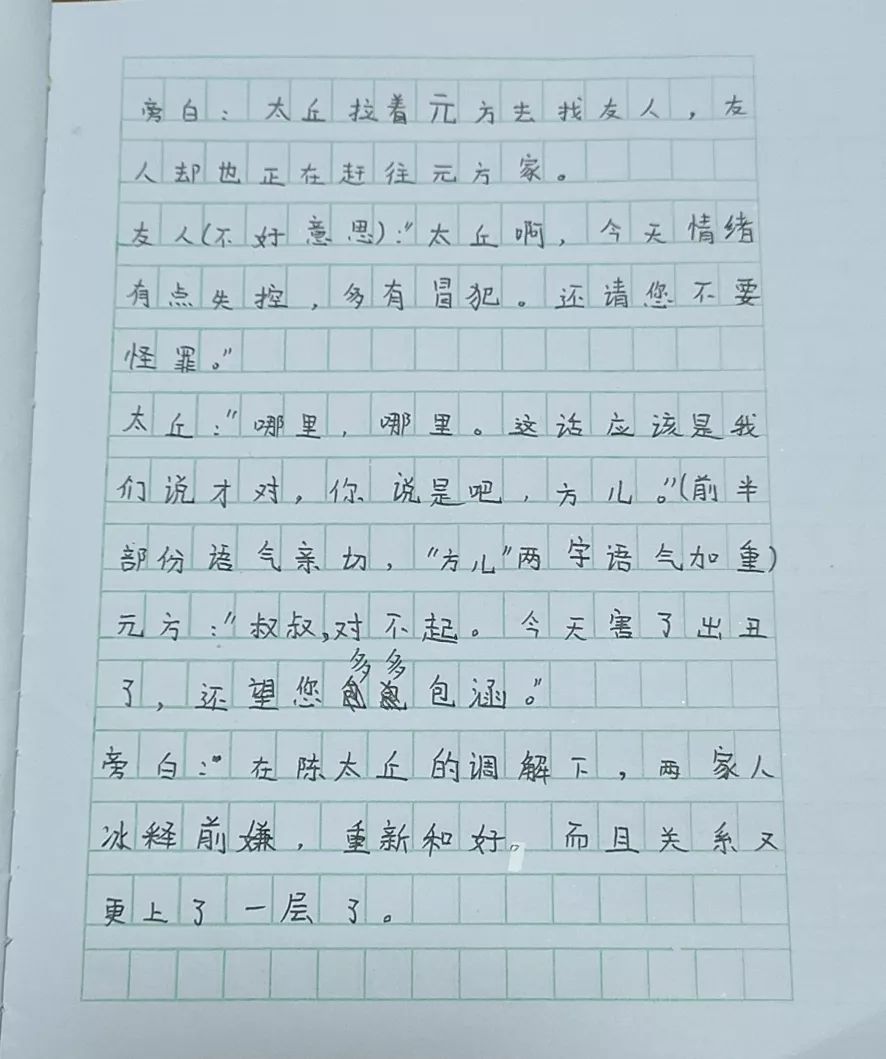 旁白：太丘拉着元方去找友人，友
人却也正在赶往元方家。
友人(不好意思)："太丘啊，今天情绪
有点失控，多有冒犯。还请您不要
怪罪。"
太丘："哪里，哪里。这话应该是我
们说才对，你说是吧，方儿。"(前半
部份语气亲切，"方儿"两字语气加重)
元方："叔叔,对不起。今天害了出丑
了，还望您多多包涵。"
旁白：在陈太丘的调解下，两家人
冰释前嫌，重新和好。而且关系又
更上了一层了。